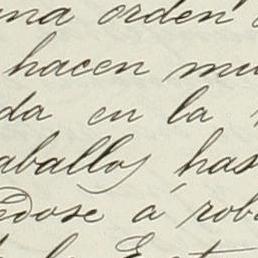 una orden
hacen mu
da en la
aballos has
édose á rob